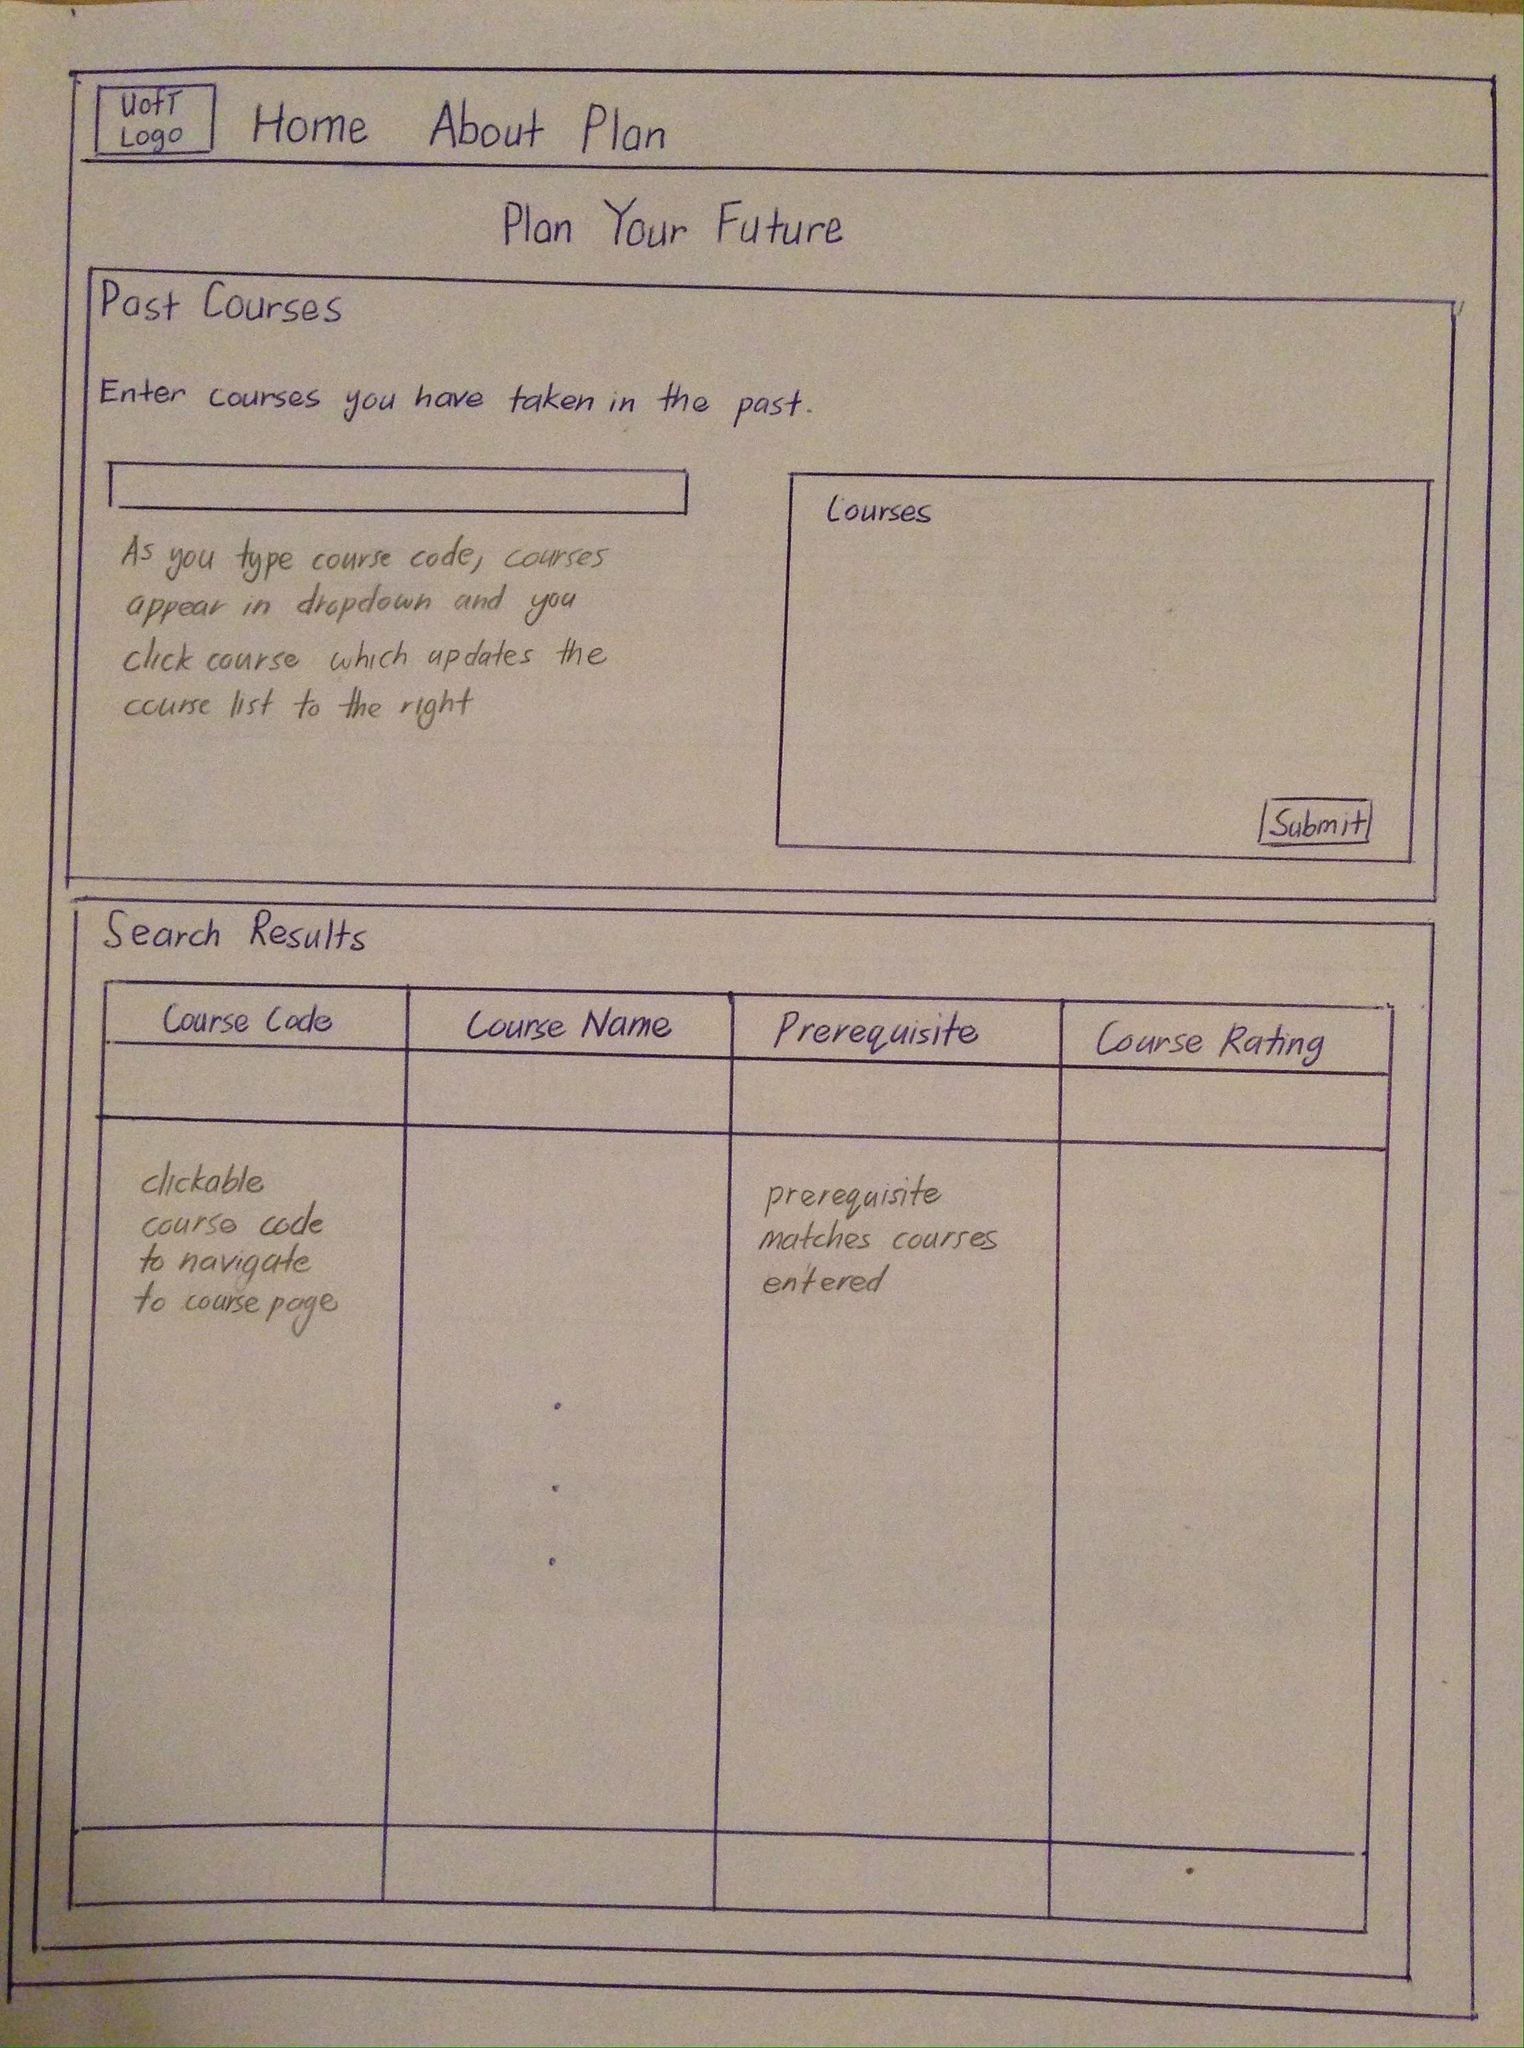 UofT
Logo
Home About Plan
Plan Your Future
Past Courses
Enter courses you have taken in the past.
As you type course code, courses
appear in dropdown and you
click course which updates the
course list to the right
Courses
Submit
Search Results
Course Code Course Name Prerequisite Course Rating
clickable
course code
to navigate
to course page
prerequisite
matches courses
entered